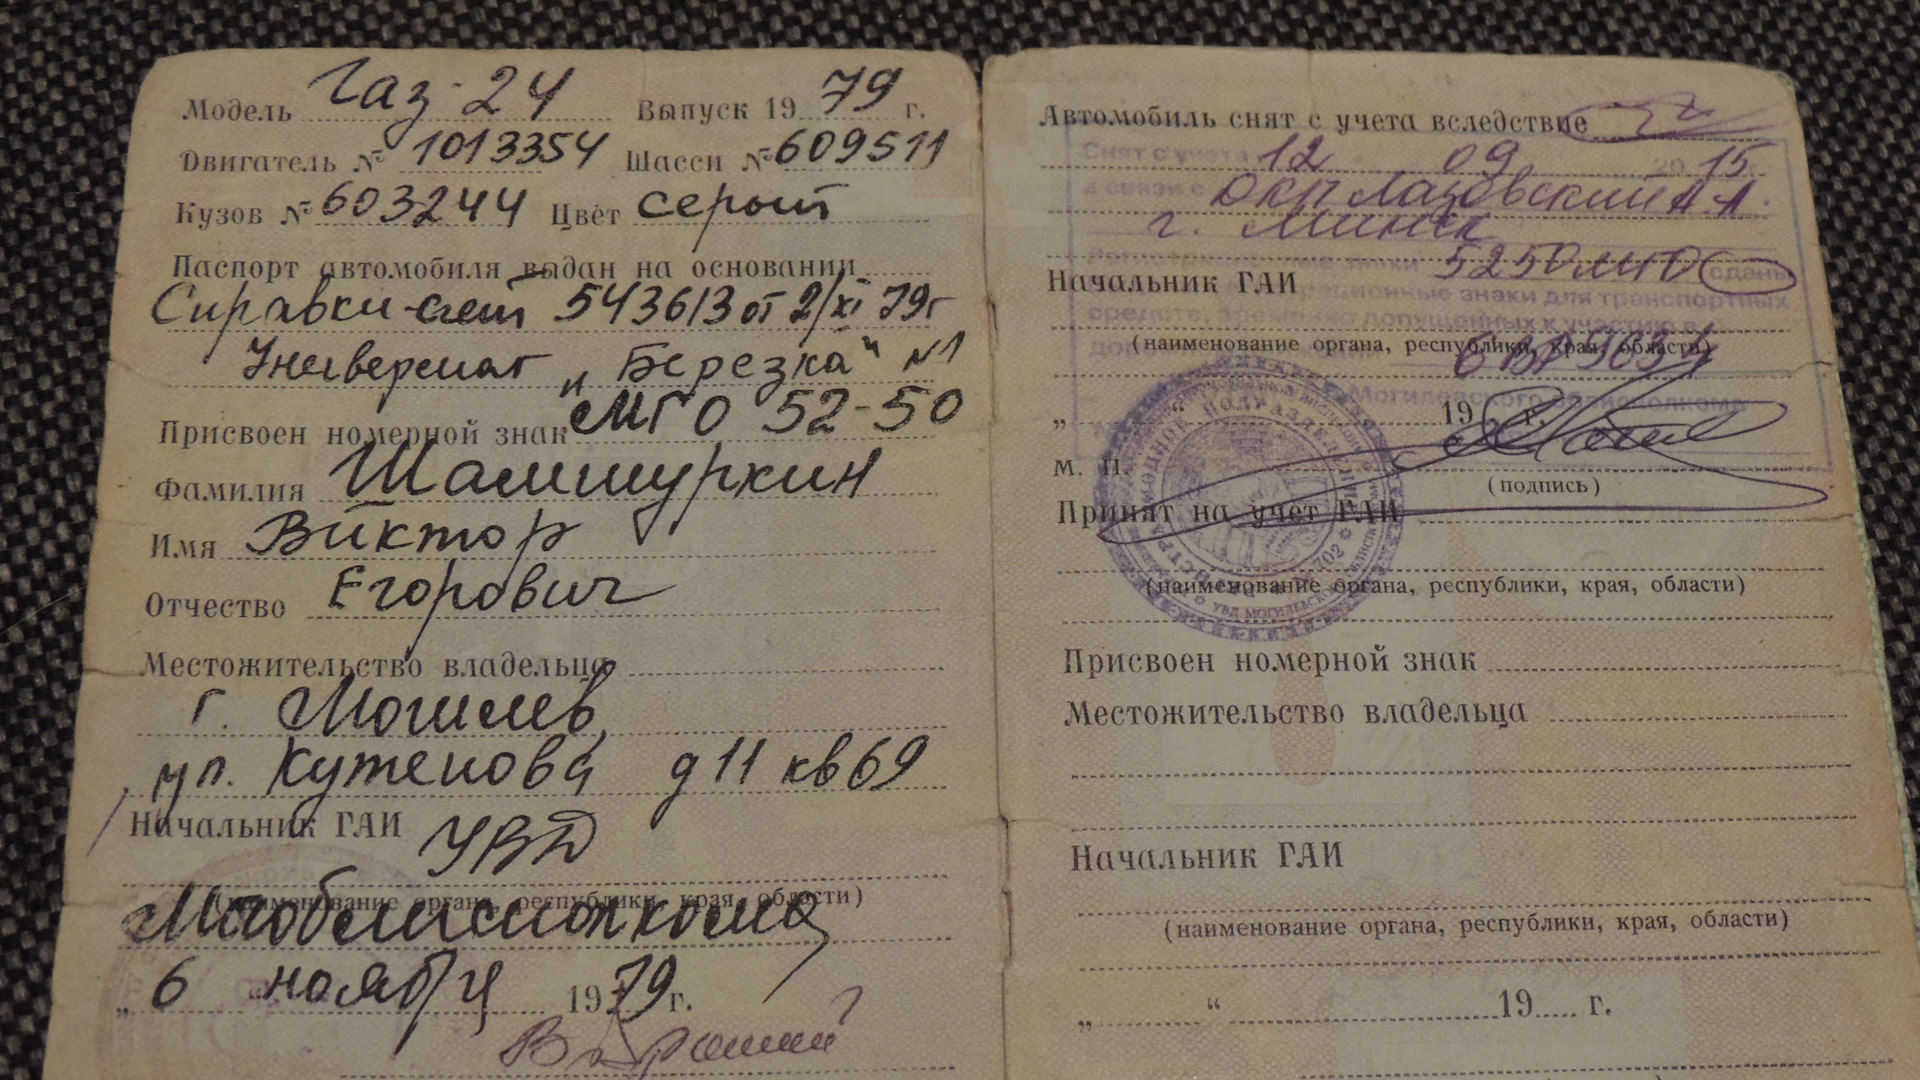 Модель Газ-24 Выпуск 1979 г.
Двигатель № 1013354 Шасси № 609511
Кузов № 603244 Цвет серый
Паспорт автомобиля выдан на основании
Справки-счет 543613 от 2/XI 79г
Универмаг „Березка" №1
Присвоен номерной знак МГО 52-50
Фамилия Шамшуркин
Имя Виктор
Отчество Егорович
Местожительство владельца
г. Могилев,
ул. д 11 кв 69
Начальник ГАИ УВД
(наименование органа, республики, края, области)
„6" ноября 1979 г.
Автомобиль снят с учета вследствие
Снят с учета 12 09 2015
в связи с Лазовский А.А.
г. Минск
Начальник ГАИ 5250 МГО сданы
знаки для транспортных
средств, временно допущенных к участию в
(наименование органа, республики, края, области)
Могилевского облисполкома
„ “ 19 г.
М. П.
(подпись)
Принят на учет ГАИ
702
УВД МОГИЛЕВСКОГО
(наименование органа, республики, края, области)
Присвоен номерной знак
Местожительство владельца
Начальник ГАИ
(наименование органа, республики, края, области)
„ “ 19 г.